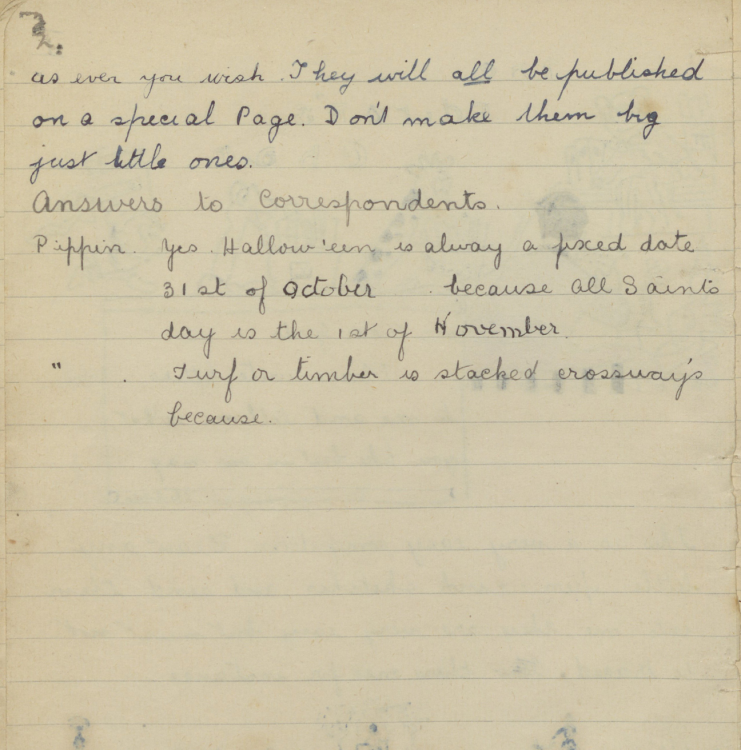 2.
as ever you wish. They will all be published
on a special Page. Don't make them big
just little ones.
Answers to Correspondents.
Pippin. Yes. Hallow'een is alway a fixed date
31st of October . because All Saints
day is the 1st of November.
" . Turf or timber is stacked crossways
because.